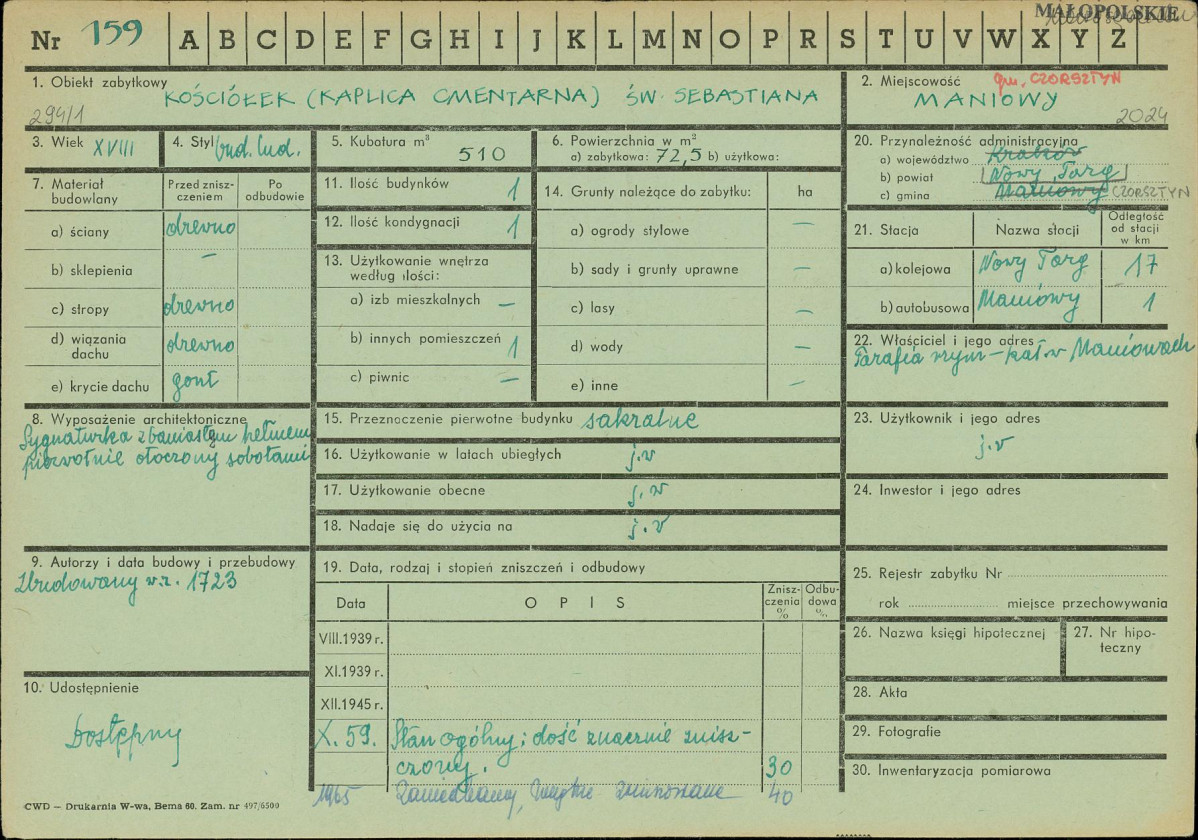 MAŁOPOLSKIE
Nr 159 A B C D E F G H I J K L M N O P R S T U V W X Y Z
1. Obiekt zabytkowy
KOŚCIÓŁEK (KAPLICA CMENTARNA) ŚW. SEBASTIANA
294/1
2. Miejscowość gm. CZORSZTYN
MANIOWY
2024
3. Wiek XVIII
4. Styl bud. lud.
5. Kubatura m³
510
6. Powierzchnia w m²
a) zabytkowa: 72,5 b) użytkowa:
7. Materiał budowlany
Przed zniszczeniem
Po odbudowie
a) ściany drewno
b) sklepienia —
c) stropy drewno
d) wiązania dachu drewno
e) krycie dachu gont
8. Wyposażenie architektoniczne
Sygnaturka z baniastym hełmem
pierwotnie otoczony sobotami
9. Autorzy i data budowy i przebudowy
Zbudowany w r. 1723
10. Udostępnienie
Dostępny
11. Ilość budynków 1
12. Ilość kondygnacji 1
13. Użytkowanie wnętrza
według ilości:
a) izb mieszkalnych —
b) innych pomieszczeń 1
c) piwnic —
14. Grunty należące do zabytku: ha
a) ogrody stylowe —
b) sady i grunty uprawne —
c) lasy —
d) wody —
e) inne —
15. Przeznoczenie pierwotne budynku sakralne
16. Użytkowanie w latach ubiegłych j.w
17. Użytkowanie obecne j.w
18. Nadaje się do użycia na j.w
19. Data, rodzaj i stopień zniszczeń i odbudowy
Data
OPIS
Zniszczenia %
Odbudowa %
VIII.1939 r.
XI.1939 r.
XII.1945 r.
X. 59. Stan ogólny; dość znacznie znisz-
czony. 30
1965 Zaniedbany, 40
20. Przynależność administracyjna
a) województwo Kraków
b) powiat Nowy Targ
c) gmina Maniowy CZORSZTYN
21. Stacja
Nazwa stacji
Odległość od stacji w km
a) kolejowa Nowy Targ 17
b) autobusowa Maniowy 1
22. Właściciel i jego adres
Parafia rzym-kat w Maniowach
23. Użytkownik i jego adres
j.w
24. Inwestor i jego adres
25. Rejestr zabytku Nr
rok miejsce przechowywania
26. Nazwa księgi hipotecznej
27. Nr hipo-
teczny
28. Akta
29. Fotografie
30. Inwentaryzacja pomiarowa
CWD — Drukarnia W-wa, Bema 60. Zam. nr 497/6500